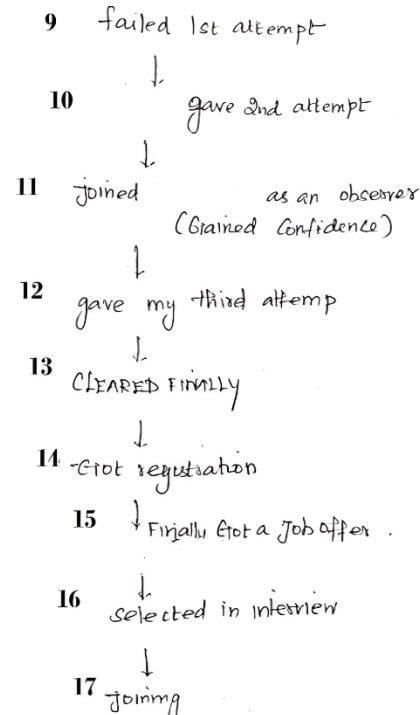 9 failed 1st attempt
10 gave 2nd attempt
11 joined as an observer
(Gained Confidence)
12 gave my third attemp
13 CLEARED FINALLY
14 Got registration
15 Finally Got a Job offer.
16 selected in interview
17 joining